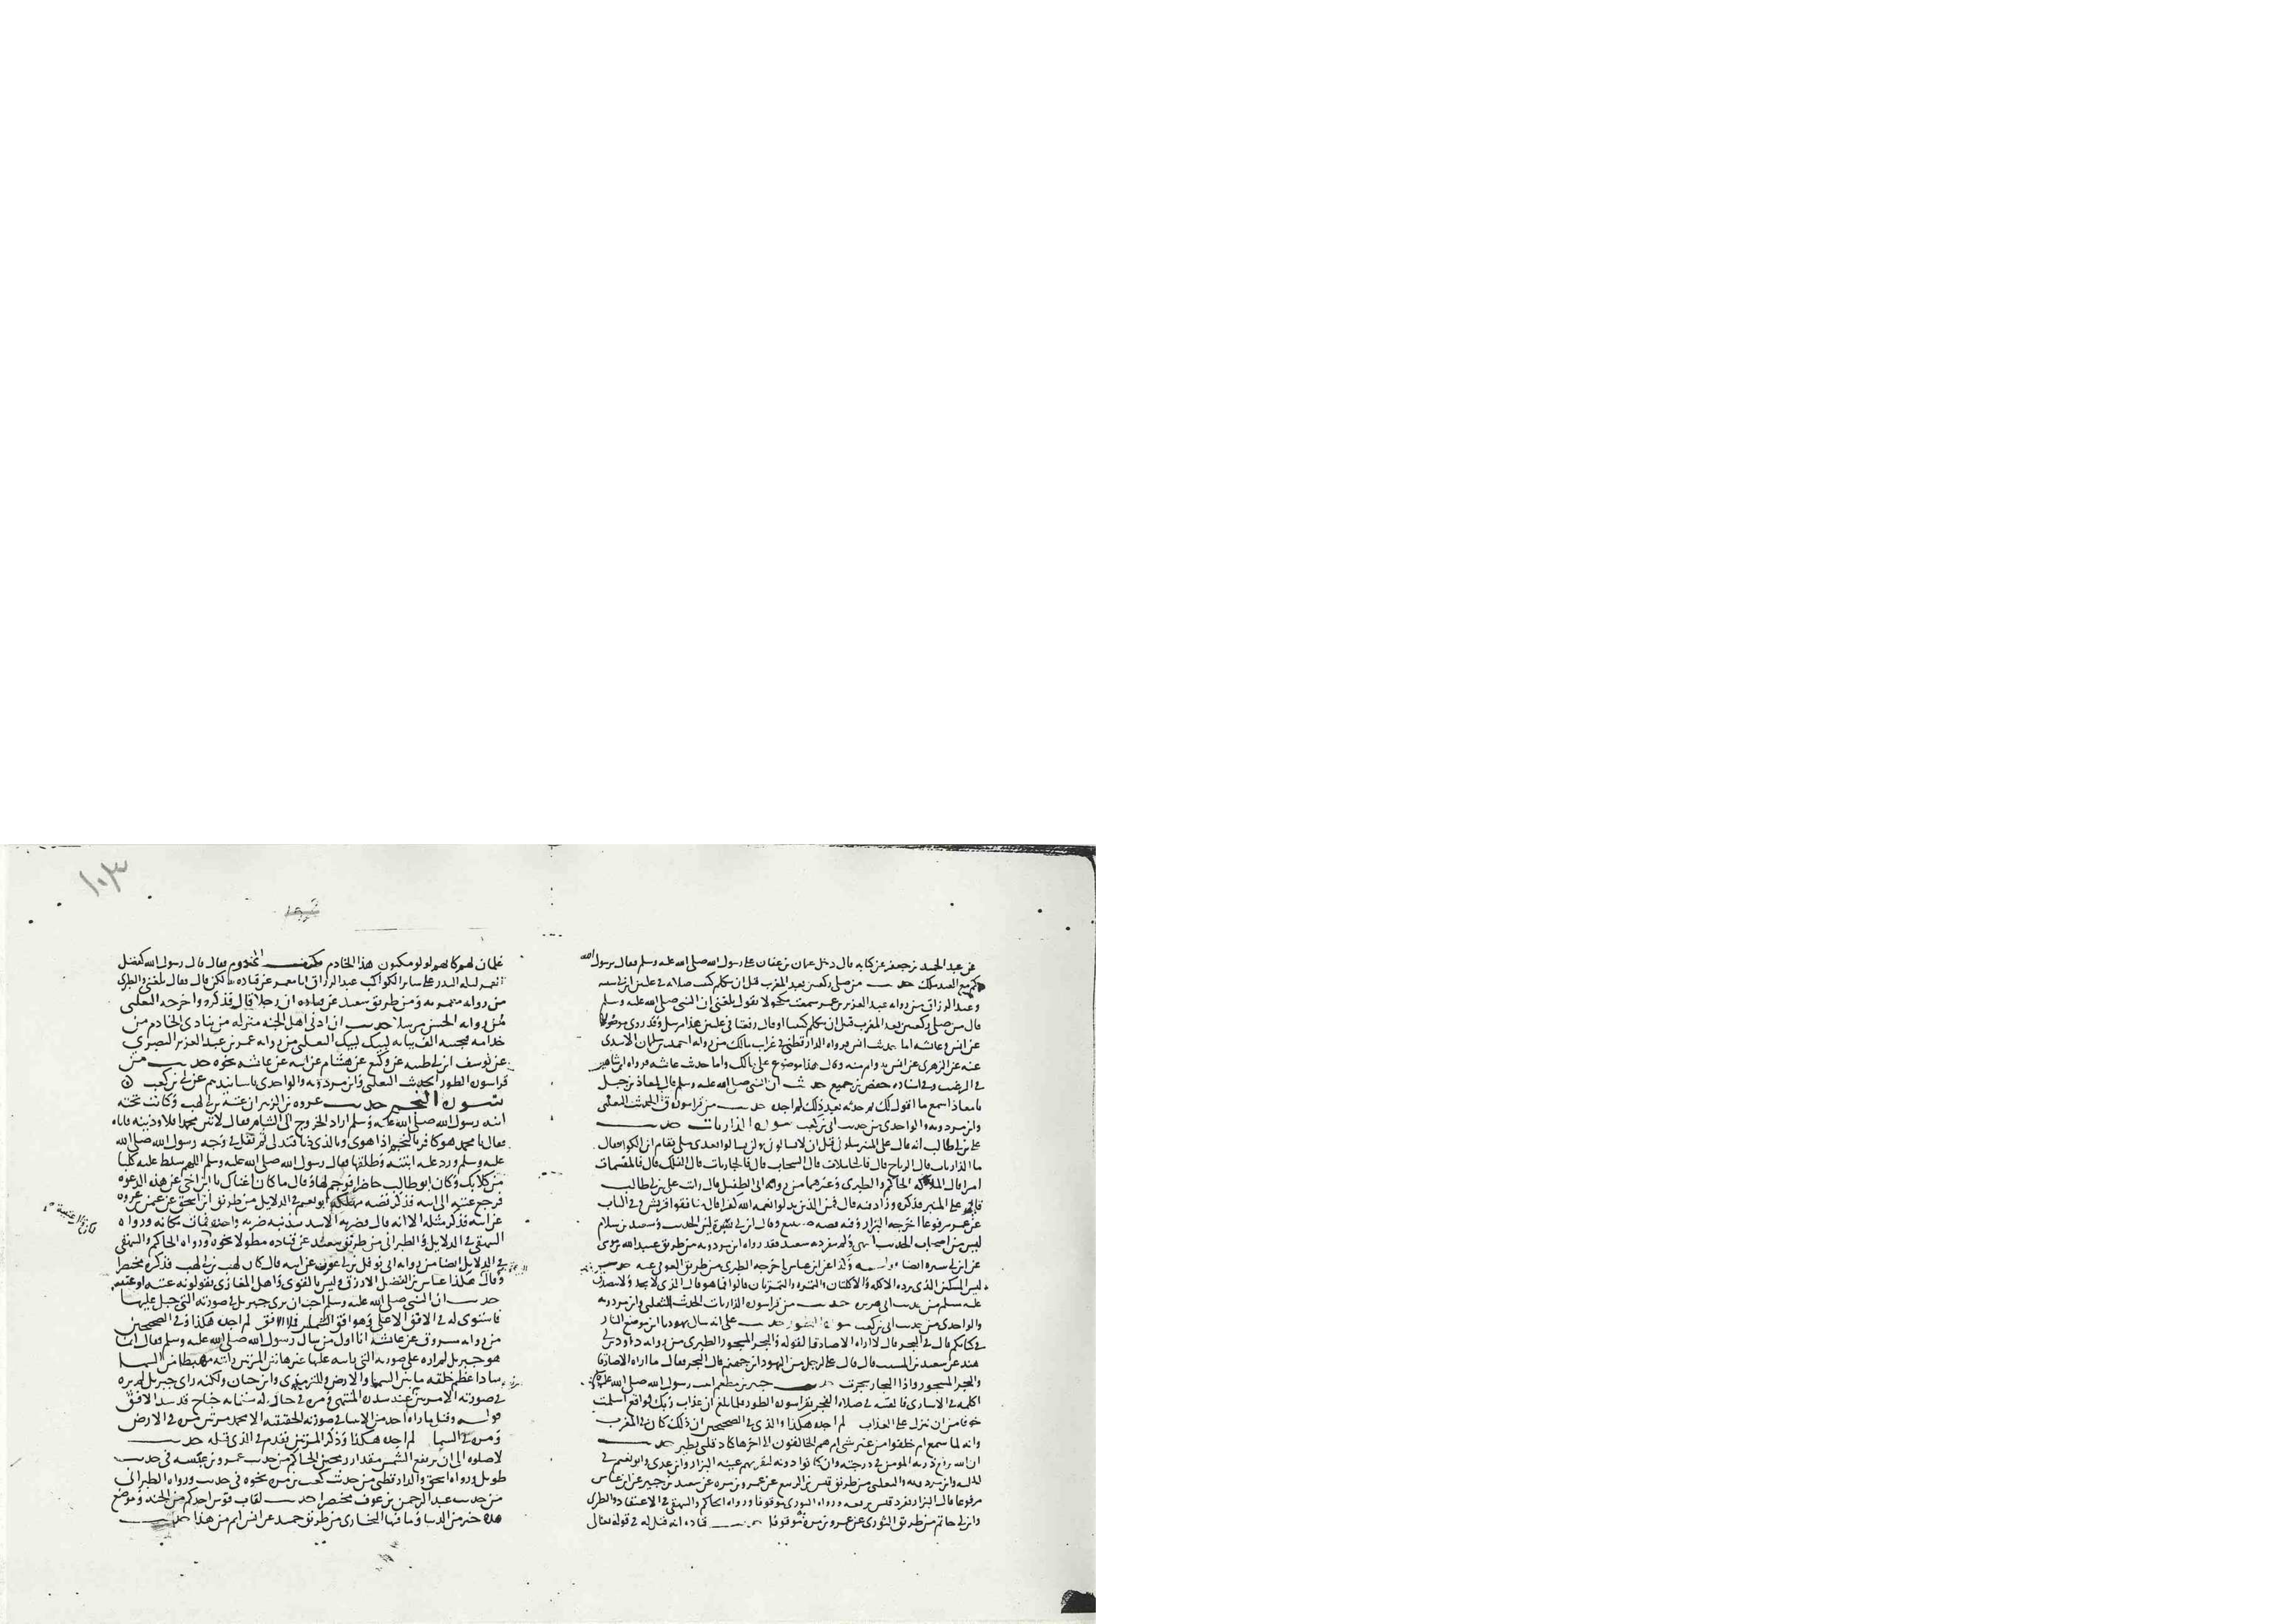 عن عبد الحميد بن جعفر عن كنانه قال دخل عثمان بن عفان على رسول الله صلى الله عليه وسلم فقال يرسول الله
كم مع العبد ملك حديث من صلى ركعتين بعد المغرب قبل ان يتكلم كتبت صلاته في عليين ابن ابي شيبه
وعبد الرزاق من روايه عبد العزيز بن عمر سمعت مكحولا يقول بلغني ان النبي صلى الله عليه وسلم
قال من صلى ركعتين بعد المغرب قبل ان يتكلم كتبتا او قال رفعتا في عليين هذا مرسل وقد روى موصولا
عن انس وعائشه اما حديث انس فرواه الدارقطني في غرائب مالك من روايه احمد بن سليمان الاسدي
عنه عن الزهري عن انس به واتم منه وقال هذا موضوع على مالك واما حديث عائشه فرواه ابن شاهين
في الترغيب وفي اسناده حفص بن جميع حديث ان النبي صلى الله عليه وسلم قال لمعاذ بن جبل
يا معاذ اسمع ما اقول لك ثم حدثه بعد ذلك لم اجده حديث من قرا سوره ق الحديث الثعلبي
وابن مردويه والواحدي من حديث ابي بن كعب سوره الذاريات حديث
علي بن ابي طالب انه قال على المنبر سلوني قبل ان لا تسالوني ولن تسالوا بعدي مثلي فقام ابن الكوا فقال
ما الذاريات قال الرياح قال فالحاملات قال السحاب قال فالجاريات قال الفلك قال فالمقسمات
امرا قال الملائكه الحاكم والطبري وغيرهما من روايه ابي الطفيل قال رايت علي بن ابي طالب
قام على المنبر فذكره وزاد فيه قال فمن الذين بدلوا نعمه الله كفرا قال منافقوا قريش وفي الباب
عن عمر مرفوعا اخرجه البزار وفيه قصه صبيغ وقال ابن ابي سبره لين الحديث وسعيد بن سلام
ليس من اصحاب الحديث انتهى ولم ينفرد به سعيد فقد رواه ابن مردويه من طريق عبيد الله بن موسى
عن ابن ابي سبره ايضا وكذا عن ابن عباس اخرجه الطبري من طريق العوفي عنه حديث
ليس المسكين الذي ترده الاكله والاكلتان والتمره والتمرتان قالوا فما هو قال الذي لا يجد ولا يتصدق
عليه مسلم من حديث ابي هريره حديث من قرا سوره الذاريات الحديث الثعلبي وابن مردويه
والواحدي من حديث ابي بن كعب سوره الطور حديث علي انه سال يهوديا اين موضع النار
في كتابكم قال في البحر قال لا اراه الا صادقا لقوله والبحر المسجور الطبري من روايه داود بن ابي
هند عن سعيد بن المسيب قال قال علي لرجل من اليهود اين جهنم قال البحر فقال ما اراه الا صادقا
والبحر المسجور واذا البحار سجرت حديث جبير بن مطعم اتيت رسول الله صلى الله عليه
اكلمه في الاسارى فالفيته في صلاه الفجر يقرا سوره الطور فلما بلغ ان عذاب ربك لواقع اسلمت
خوفا من ان ينزل علي العذاب لم اجده هكذا والذي في الصحيحين ان ذلك كان في المغرب
وانه لما سمع ام خلقوا من غير شي ام هم الخالقون الى اخرها كاد قلبي يطير حديث
ان الله يرفع ذريه المومن في درجته وان كانوا دونه لتقر بهم عينه البزار وابن عدي وابو نعيم في
الحليه وابن مردويه والثعلبي من طريق قيس بن الربيع عن عمرو بن مره عن سعيد بن جبير عن ابن عباس
مرفوعا قال البزار تفرد قيس برفعه ورواه الثوري موقوفا ورواه الحاكم والبيهقي في الاعتقاد والطبري
وابن ابي حاتم من طريق الثوري عن عمرو بن مره موقوفا حديث قتاده انه قيل له في قوله تعالى
١٠٣
غلمان لهم كانهم لولو مكنون هذا الخادم فكيف المخدوم فقال قال رسول الله كفضل
القمر ليله البدر على سائر الكواكب عبد الرزاق انا معمر عن قتاده لكن قال فقال بلغني والطبري
من روايه معمر به ومن طريق سعيد عن قتاده ان رجلا قال فذكره واخرجه الثعلبي
من روايه الحسن مرسلا حديث ان ادنى اهل الجنه منزله من ينادي الخادم من
خدامه فيجيبه الف ببابه لبيك لبيك الثعلبي من روايه عمر بن عبد العزيز البصري
عن يوسف ابن ابي طيبه عن وكيع عن هشام عن ابيه عن عائشه نحوه حديث من
قرا سوره الطور الحديث الثعلبي وابن مردويه والواحدي باسانيدهم عن ابي بن كعب
سوره النجم حديث عروه بن الزبير ان عتبه بن ابي لهب وكانت تحته
ابنه رسول الله صلى الله عليه وسلم اراد الخروج الى الشام فقال لاتين محمدا فلاوذينه فاتاه
فقال يا محمد هو كافر بالنجم اذا هوى وبالذي دنا فتدلى ثم تفل في وجه رسول الله صلى الله
عليه وسلم ورد عليه ابنته وطلقها فقال رسول الله صلى الله عليه وسلم اللهم سلط عليه كلبا
من كلابك وكان ابو طالب حاضرا فوجم لها وقال ما كان اغناك يا ابن اخي عن هذه الدعوه
فرجع عتبه الى ابيه فذكر قصه مطوله ابو نعيم في الدلايل من طريق ابن اسحق عن عثمن بن عروه
عن ابيه فذكر مثله الا انه قال فضربه الاسد بذنبه ضربه واحده فمات مكانه ورواه
البيهقي في الدلايل والطبراني من طريق سعيد عن قتاده مطولا نحوه ورواه الحاكم والبيهقي
في الدلايل ايضا من روايه ابي نوفل بن ابي عقرب عن ابيه قال كان لهب بن ابي لهب فذكره مختصرا
وقال هكذا عباس بن الفضل الازرق وليس بالقوي واهل المغازي يقولونه عتبه او عتيبه
حديث ان النبي صلى الله عليه وسلم احب ان يرى جبريل في صورته التي جبل عليها
فاستوى له في الافق الاعلى وهو افق الشمس فملا الافق لم اجده هكذا وفي الصحيحين
من روايه مسروق عن عائشه انا اول من سال رسول الله صلى الله عليه وسلم فقال انما
هو جبريل لم اره على صورته التي خلق عليها غير هاتين المرتين رايته مهبطا من السما
سادا عظم خلقه ما بين السما والارض وللترمذي وابن حبان ولكنه راى جبريل لم يره
في صورته الا مرتين عند سدره المنتهى ومره في جياد له ستمايه جناح قد سد الافق
قوله وقيل ما راه احد من الانبيا في صورته الحقيقيه الا محمد مرتين مره في الارض
ومره في السما لم اجده هكذا وذكر المرتين تقدم في الذي قبله حديث
لا صلوه الى ان ترتفع الشمس مقدار رمحين الحاكم من حديث عمرو بن عبسه في حديث
طويل ورواه اسحق والدارقطني من حديث كعب بن مره نحوه في حديث ورواه الطبراني
من حديث عبد الرحمن بن عوف مختصرا حديث لقاب قوس احدكم من الجنه وموضع
قده خير من الدنيا وما فيها البخاري من طريق حميد عن انس اتم من هذا حديث